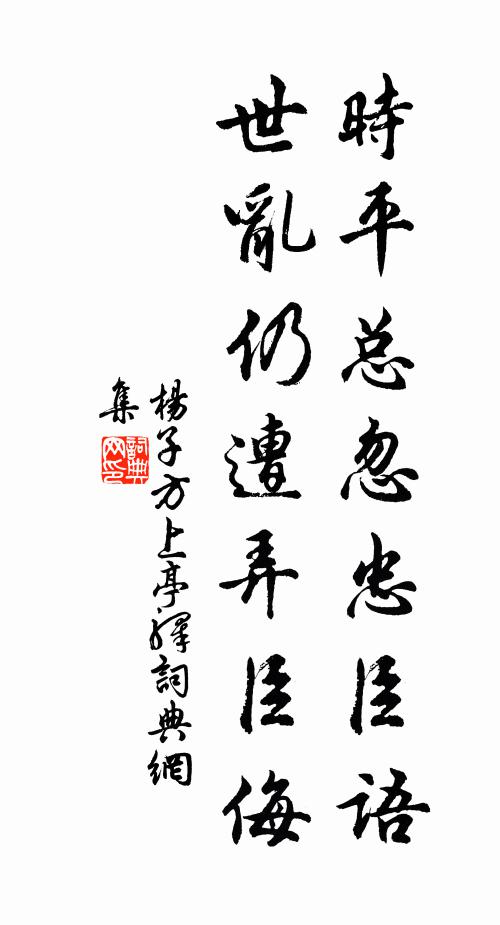 時平总忽忠臣語
世亂仍遭弄臣侮
楊子方上亭驛詞典網
集
詞典
网印